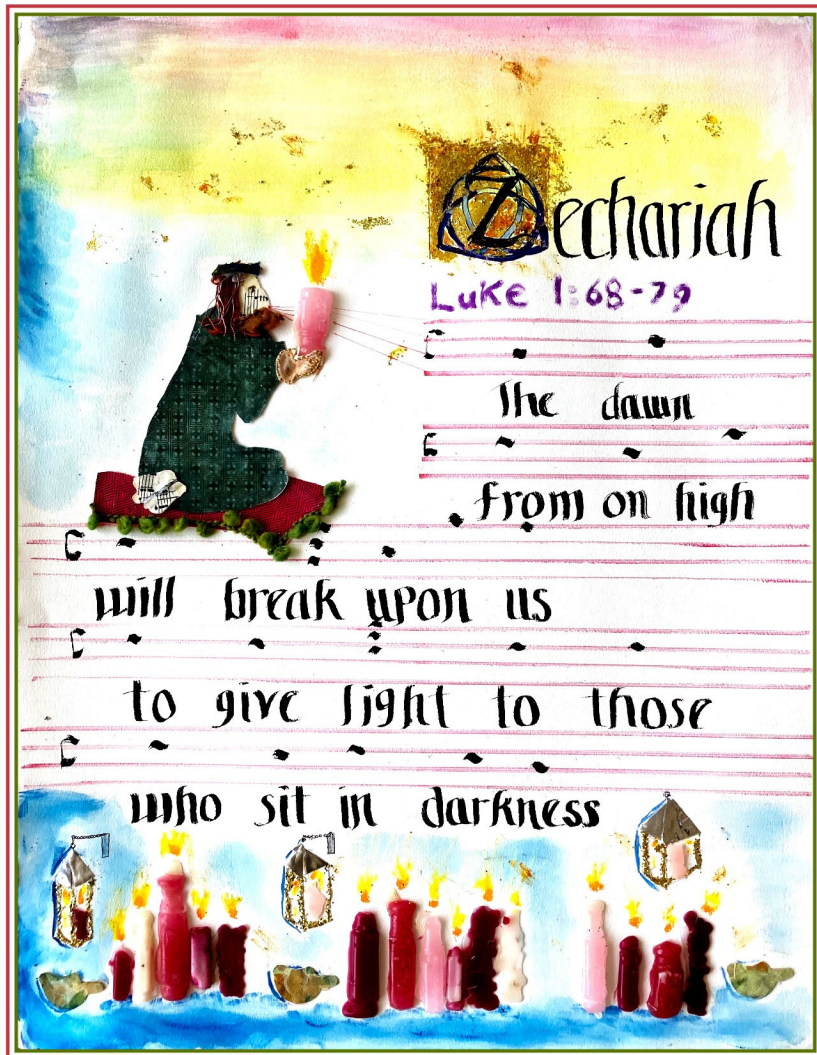 Zechariah
Luke 1:68-79
The dawn
from on high
will break upon us
to give light to those
who sit in darkness